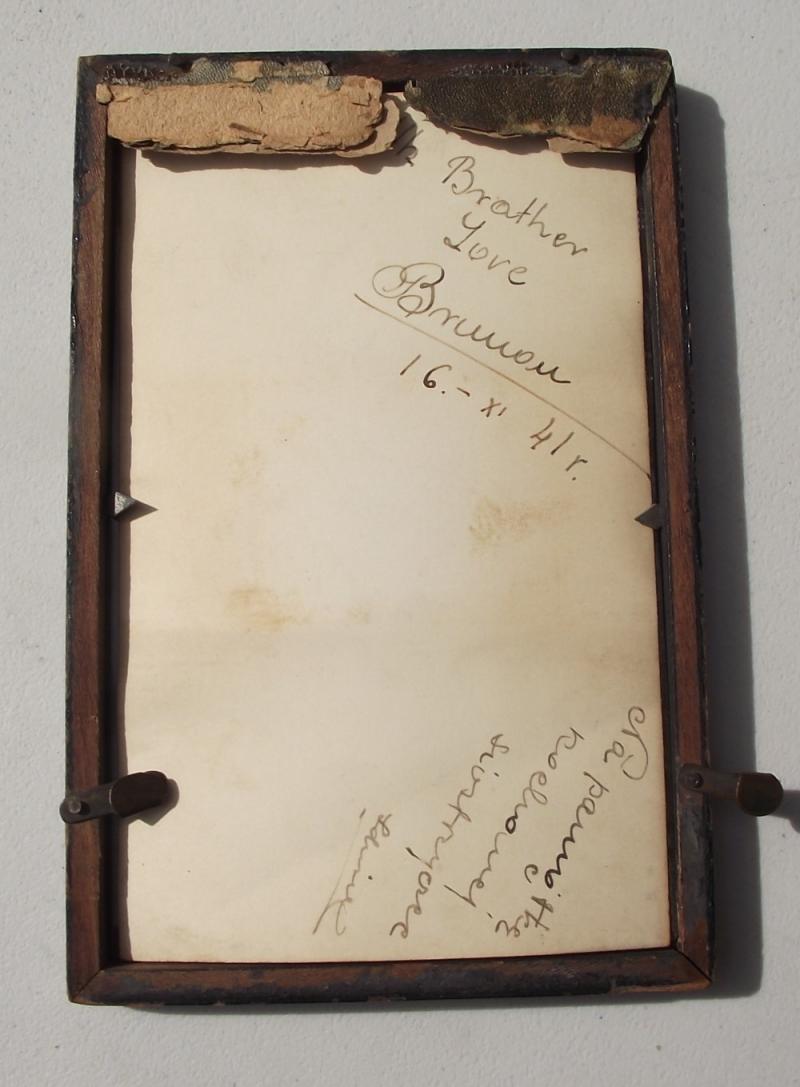 Brather
Love
Brunon
16.- XI 41r.
Na pamiątkę
kochanej
siostrycce